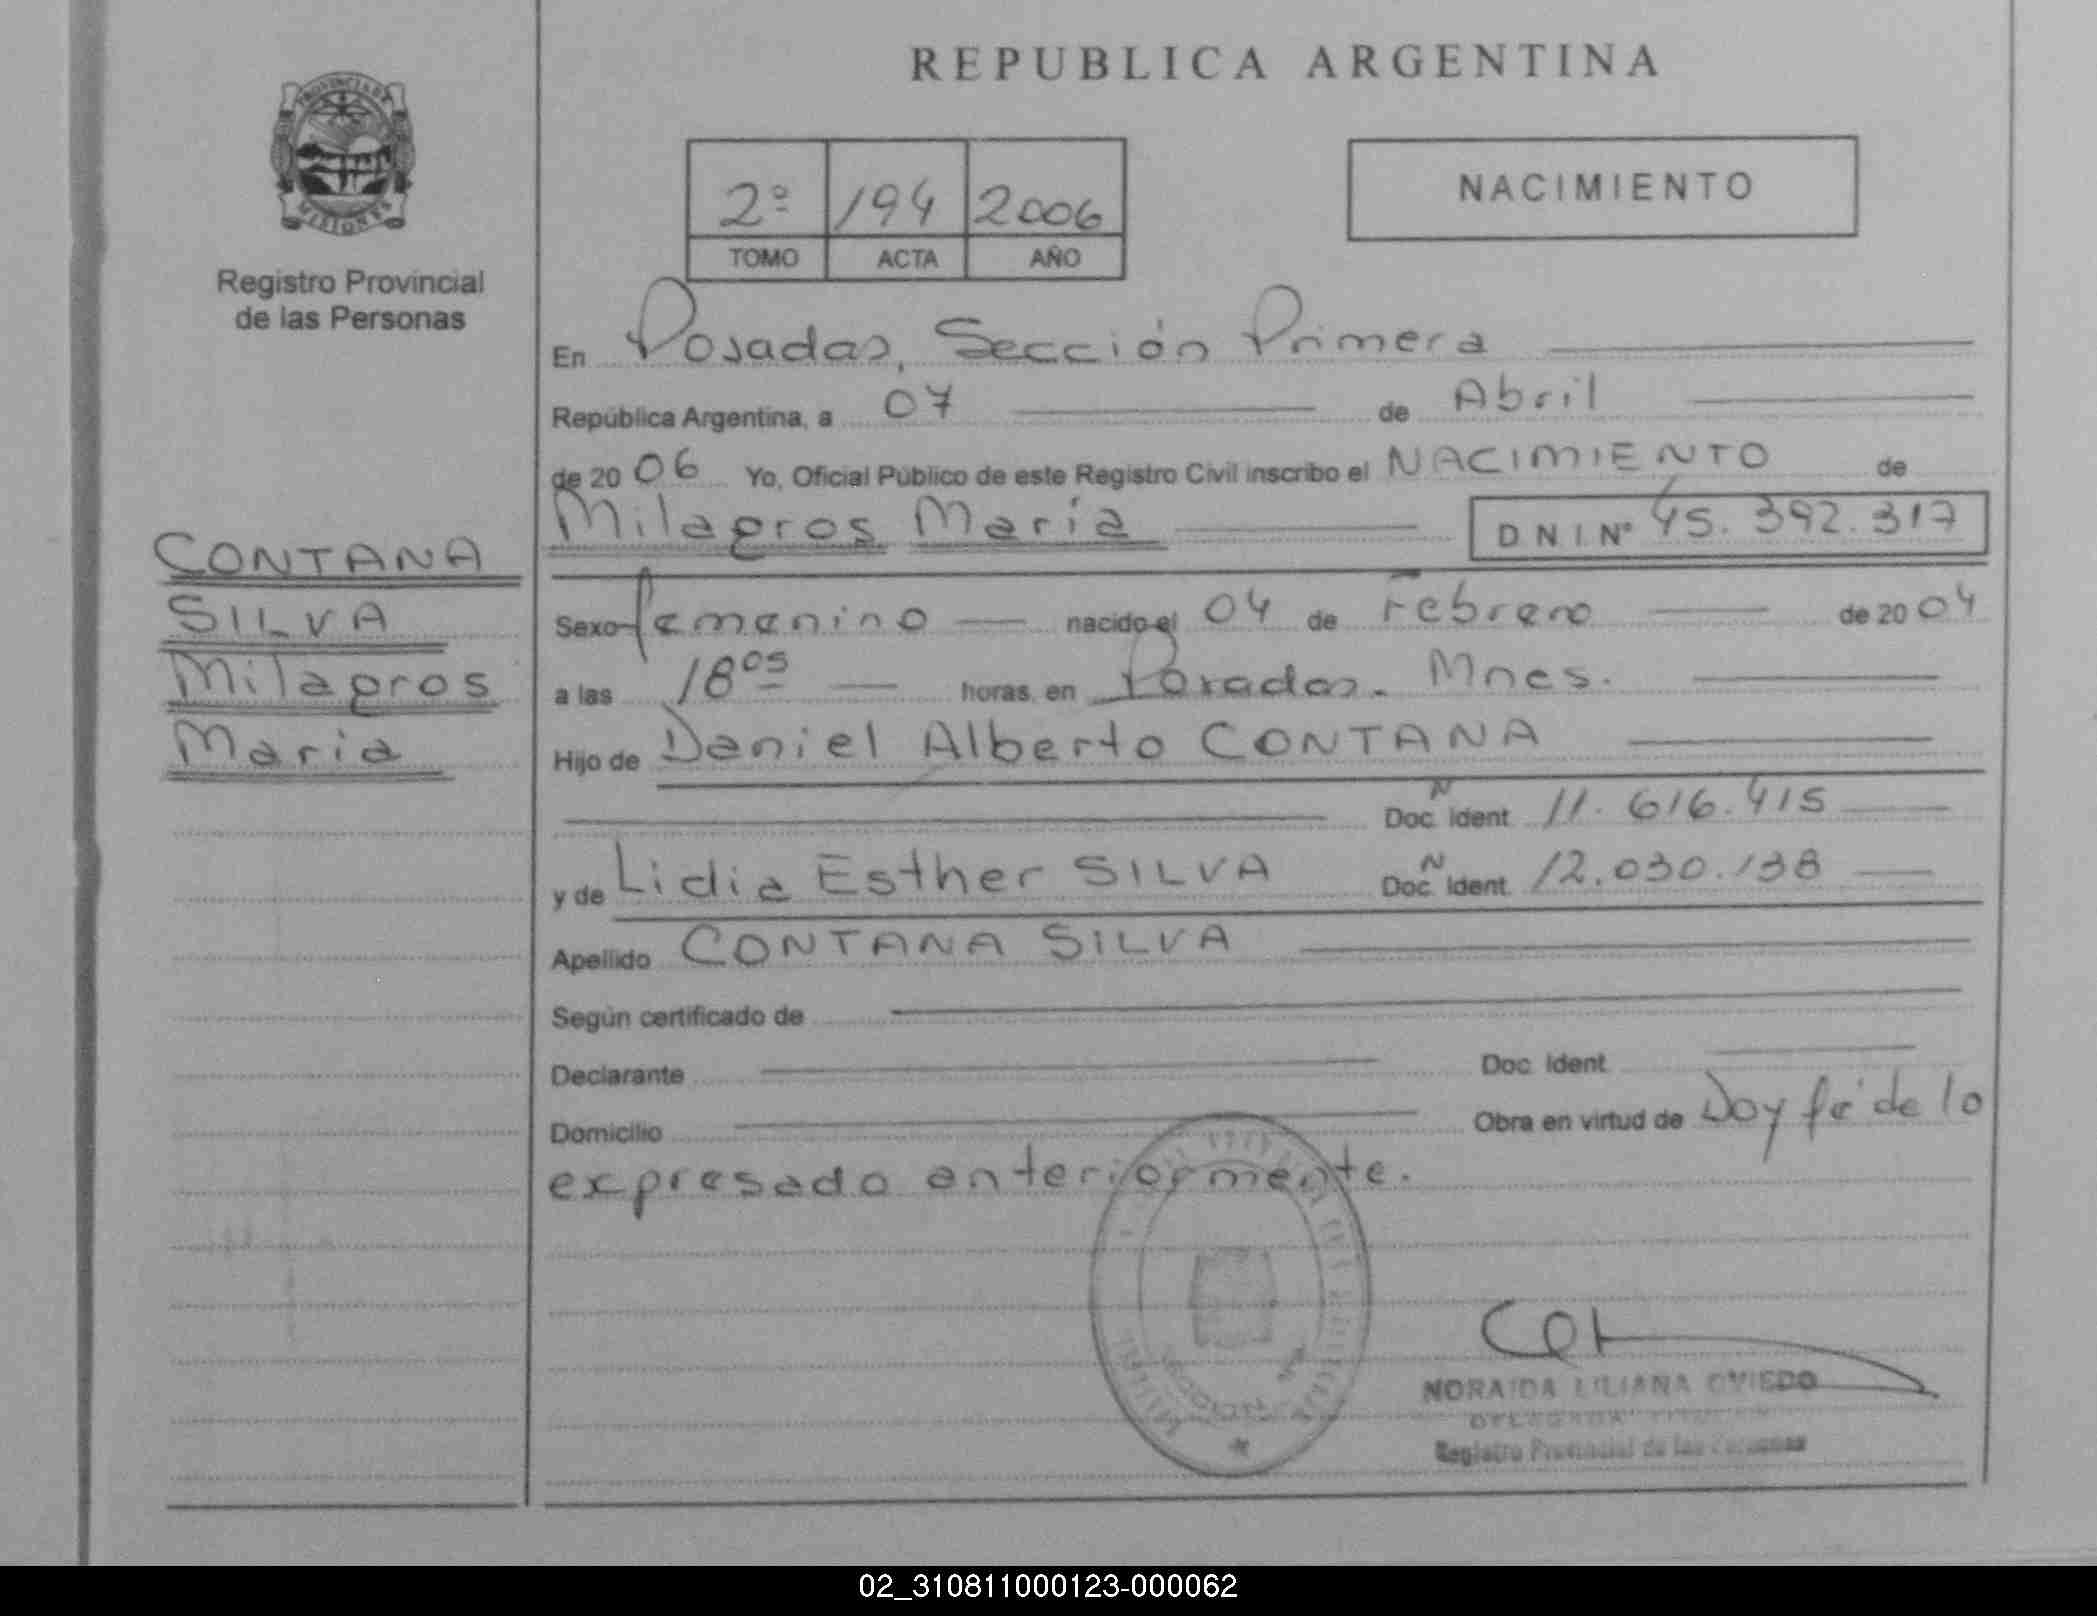 REPUBLICA ARGENTINA
PROVINCIA DE
MISIONES
Registro Provincial
de las Personas
2º 194 2006
TOMO ACTA AÑO
NACIMIENTO
En Posadas, Sección Primera
República Argentina, a 07 de Abril
de 20 06 Yo, Oficial Público de este Registro Civil inscribo el NACIMIENTO de
Milagros María
D N I. Nº 45.392.317
CONTANA
SILVA
Milagros
María
Sexo femenino nacido el 04 de Febrero de 20 04
a las 18 05 horas, en Posadas. Mnes.
Hijo de Daniel Alberto CONTANA
Doc. Ident. 11.616.415
y de Lidia Esther SILVA Doc. Ident. 12.030.138
Apellido CONTANA SILVA
Según certificado de
Declarante Doc. Ident.
Domicilio Obra en virtud de Doy fé de lo
expresado anteriormente.
NORAIDA LILIANA OVIEDO
DELEGADA TITULAR
Registro Provincial de las Personas
02_310811000123-000062